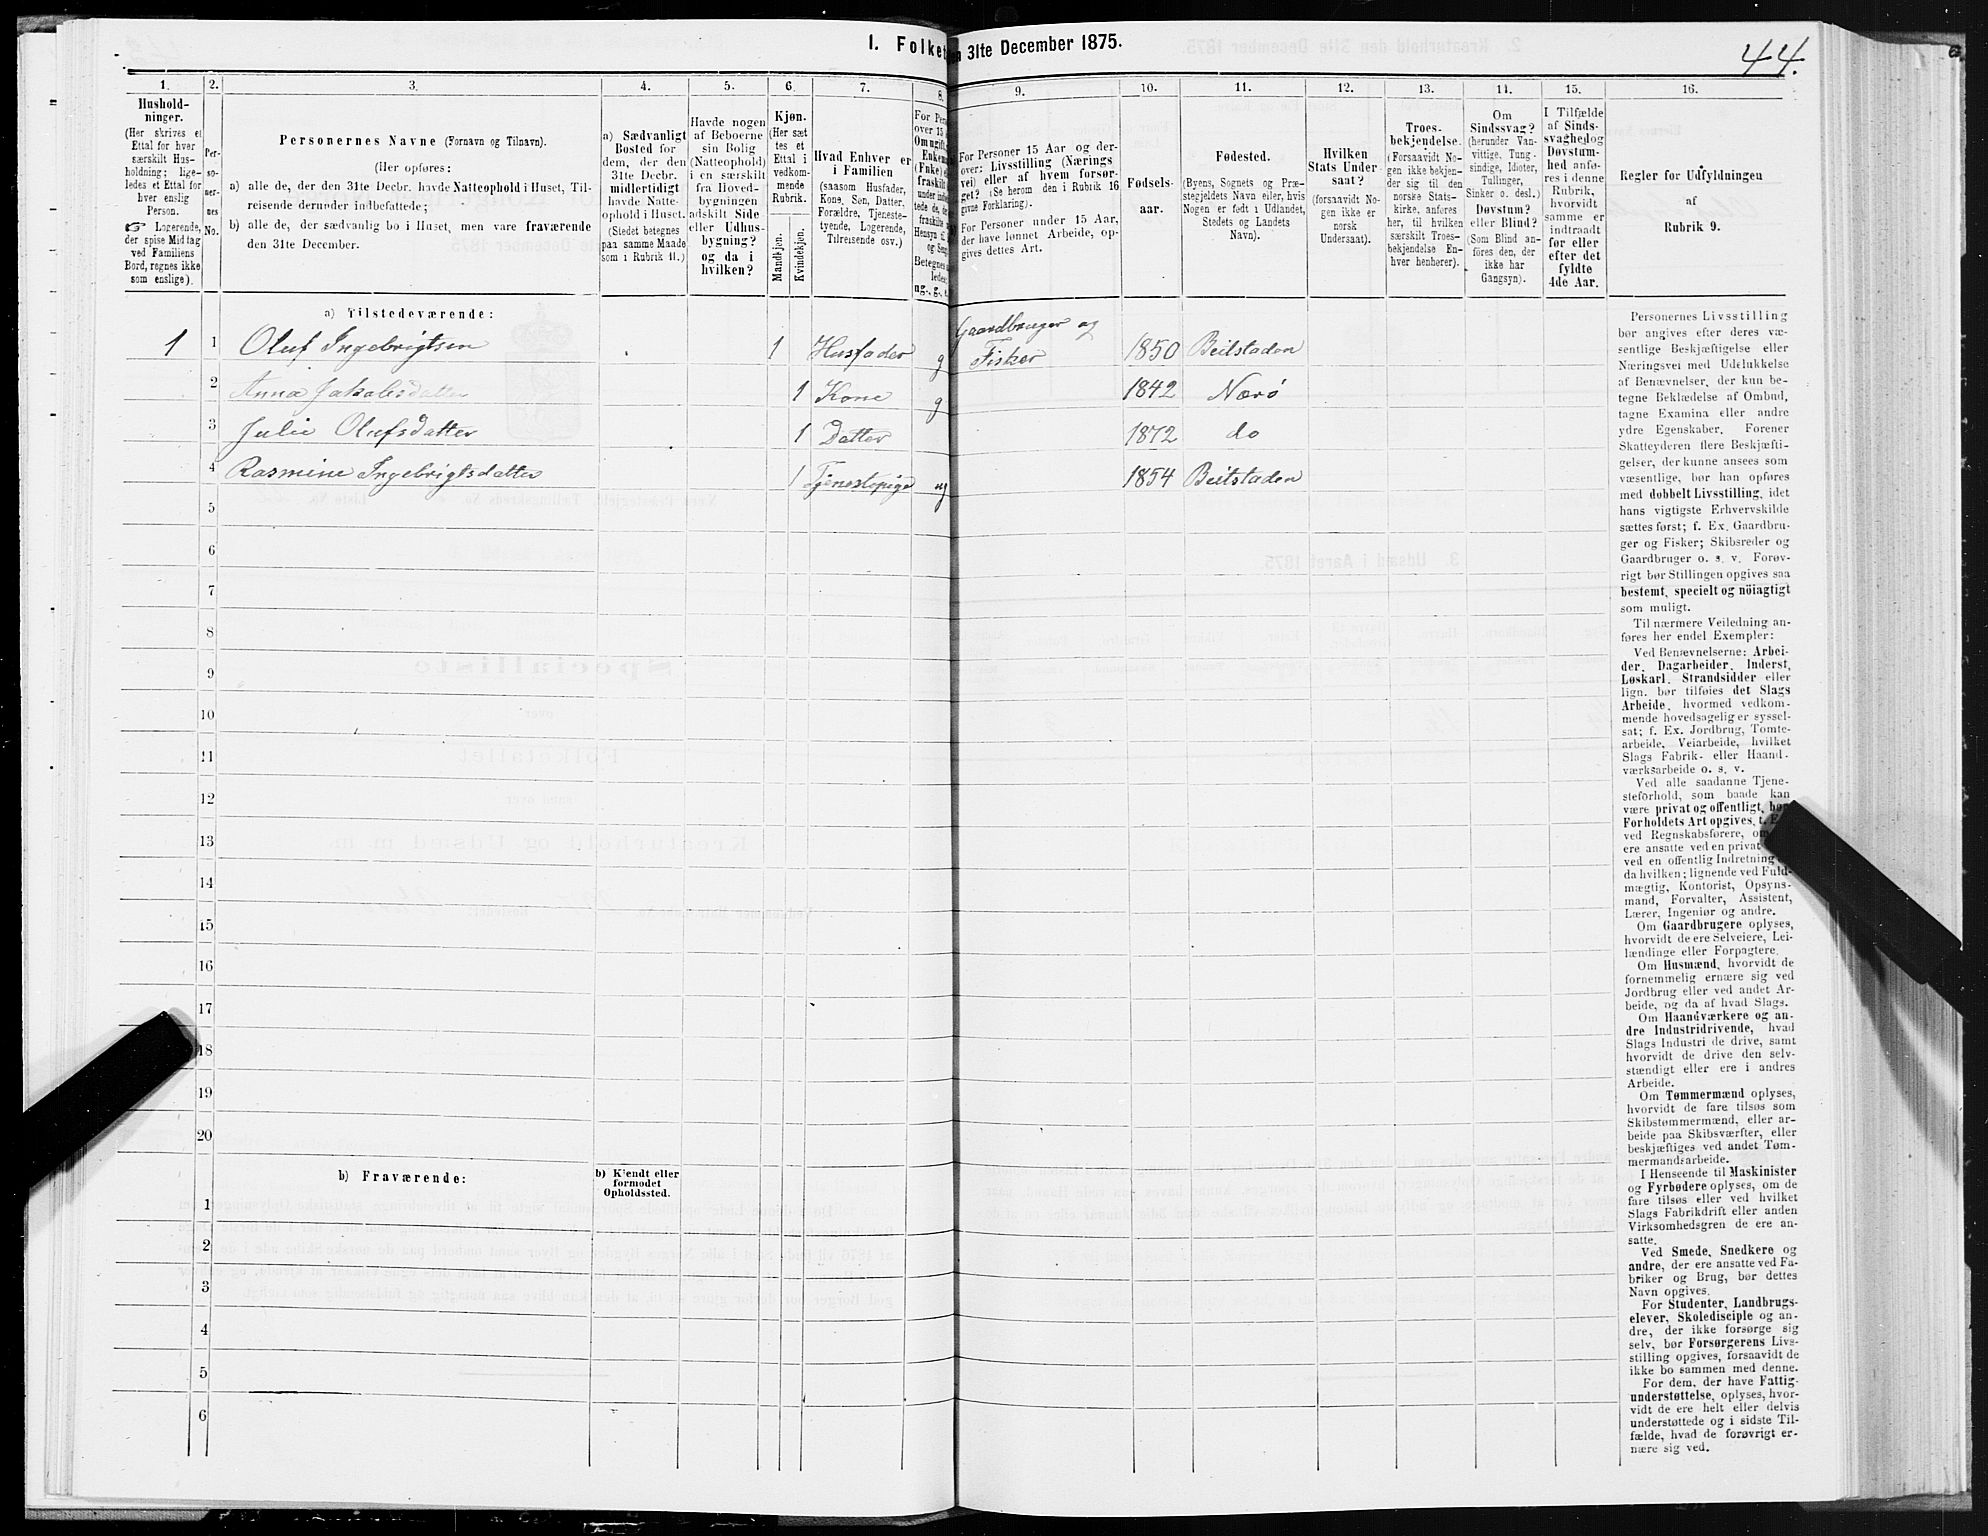 I. Folket
en 31te December 1875.
44.
1. 2. 3. 4. 5. 6. 7. 8. 9. 10. 11. 12. 13. 14. 15. 16.
Hushold-
ninger.
(Her skrives et
Ettal for hver
særskilt Hus-
holdning; lige-
ledes et Ettal for
hver enslig
Person.
☞ Logerende,
der spise Middag
ved Familiens
Bord, regnes ikke
som enslige).
Per-
so-
ner-
nes
No.
Personernes Navne (Fornavn og Tilnavn).
(Her opføres:
a) alle de, der den 31te Decbr. havde Natteophold i Huset, Til-
reisende derunder indbefattede;
b) alle de, der sædvanlig bo i Huset, men vare fraværende
den 31te December.
a) Sædvanligt
Bosted for
dem, der den
31te Decbr.
midlertidigt
havde Natte-
ophold i Huset.
(Stedet betegnes
paa samme Maade
som i Rubrik 11.)
Havde nogen
af Beboerne
sin Bolig
(Natteophold)
i en særskilt
fra Hoved-
bygningen
adskilt Side-
eller Udhus-
bygning?
og da i
hvilken?
Kjøn.
(Her sæt-
tes et
Ettal i
vedkom-
mende
Rubrik.
Mandkjøn.
Kvindekjøn.
Hvad Enhver er
i Familien
(saasom Husfader,
Kone, Søn, Datter,
Forældre, Tjeneste-
tyende, Logerende,
Tilreisende osv.)
For Personer 15 Aar og der-
over: Livsstilling (Nærings-
vei) eller af hvem forsør-
get? (Se herom den i Rubrik 16
givne Forklaring).
For Personer under 15 Aar,
der have lønnet Arbeide, op-
gives dettes Art.
Fødsels-
aar.
Fødested.
(Byens, Sognets og Præ-
stegjeldets Navn eller, hvis
Nogen er født i Udlandet,
Stedets og Landets
Navn).
Hvilken
Stats Under-
saat?
(forsaavidt No-
gen ikke er
norsk
Undersaat).
Troes-
bekjendelse.
(Forsaavidt No-
gen ikke bekjen-
der sig til den
norske Stats-
kirke, anføres
her, til hvilken
særskilt Troes-
bekjendelse En-
hver henhører).
Om
Sindssvag?
(herunder Van-
vittige, Tung-
sindige, Idioter,
Tullinger,
Sinker o. desl.)
Døvstum?
eller Blind?
(Som Blind an-
føres den, der
ikke har
Gangsyn).
I Tilfælde
af Sinds-
svaghed og
Døvstum-
hed anfø-
res i denne
Rubrik,
hvorvidt
samme er
indtraadt
før eller
efter det
fyldte
4de Aar.
Regler for Udfyldningen
af
Rubrik 9.
a) Tilstedeværende:
1 1 Oluf Ingebrigtsen 1 Husfader g Gaardbruger og
Fisker 1850 Beitstaden
2 Anna Jakobsdatter 1 Kone g 1842 Nærø
3 Julie Olufsdatter 1 Datter 1872 do
4 Rasmine Ingebrigtsdatter 1 Tjenestepige ug 1854 Beitstaden
5
6
7
8
9
10
11
12
13
14
15
16
17
18
19
20
b) Fraværende:
b) Kjendt eller
formodet
Opholdssted.
1
2
3
4
5
6
Personernes Livsstilling
bør angives efter deres væ-
sentlige Beskjæftigelse eller
Næringsvei med Udelukkelse
af Benævnelser, der kun be-
tegne Beklædelse af Ombud,
tagne Examina eller andre
ydre Egenskaber. Forener
Skatteyderen flere Beskjæfti-
gelser, der kunne ansees som
væsentlige, bør han opføres
med dobbelt Livsstilling, idet
hans vigtigste Erhvervskilde
sættes først; f. Ex. Gaardbru-
ger og Fisker; Skibsreder og
Gaardbruger o. s. v. Forøv-
rigt bør Stillingen opgives saa
bestemt, specielt og nöiagtigt
som muligt.
Til nærmere Veiledning an-
føres her endel Exempler:
Ved Benævnelserne: Arbei-
der, Dagarbeider, Inderst,
Løskarl, Strandsidder eller
lign. bør tilføies det Slags
Arbeide, hvormed vedkom-
mende hovedsagelig er syssel-
sat; f. Ex. Jordbrug, Tomte-
arbeide, Veiarbeide, hvilket
Slags Fabrik- eller Haand-
værksarbeide o. s. v.
Ved alle saadanne Tjene-
steforhold, som baade kan
være privat og offentligt, bør
Forholdets Art opgives, t. E
ved Regnskabsførere, om
ere ansatte ved en privat
ved en offentlig Indretning
da hvilken; lignende ved Fuld-
mægtig, Kontorist, Opsyns-
mand, Forvalter, Assistent,
Lærer, Ingeniør og andre.
Om Gaardbrugere oplyses,
hvorvidt de ere Selveiere, Lei-
lændinge eller Forpagtere.
Om Husmænd, hvorvidt de
fornemmelig ernære sig ved
Jordbrug eller ved andet Ar-
beide, og da af hvad Slags.
Om Haandværkere og an-
dre Industridrivende, hvad
Slags Industri de drive, samt
hvorvidt de drive den selv-
stændigt eller ere i andres
Arbeide.
Om Tømmermænd oplyses,
hvorvidt de fare tilsøs som
Skibstømmermænd, eller ar-
beide paa Skibsværfter, eller
beskjæftiges ved andet Tøm-
mermandsarbeide.
I Henseende til Maskinister
og Fyrbødere oplyses, om de
fare tilsøs eller ved hvilket
Slags Fabrikdrift eller anden
Virksomhedsgren de ere an-
satte.
Ved Smede, Snedkere og
andre, der ere ansatte ved Fa-
briker og Brug, bør dettes
Navn opgives.
For Studenter, Landbrugs-
elever, Skoledisciple og an-
dre, der ikke forsørge sig
selv, bør Forsørgerens Livs-
stilling opgives, forsaavidt de
ikke bo sammen med denne.
For dem, der have Fattig-
understøttelse, oplyses, hvor-
vidt de ere helt eller delvis
understøttede og i sidste Til-
fælde, hvad de forøvrigt er-
nære sig ved.